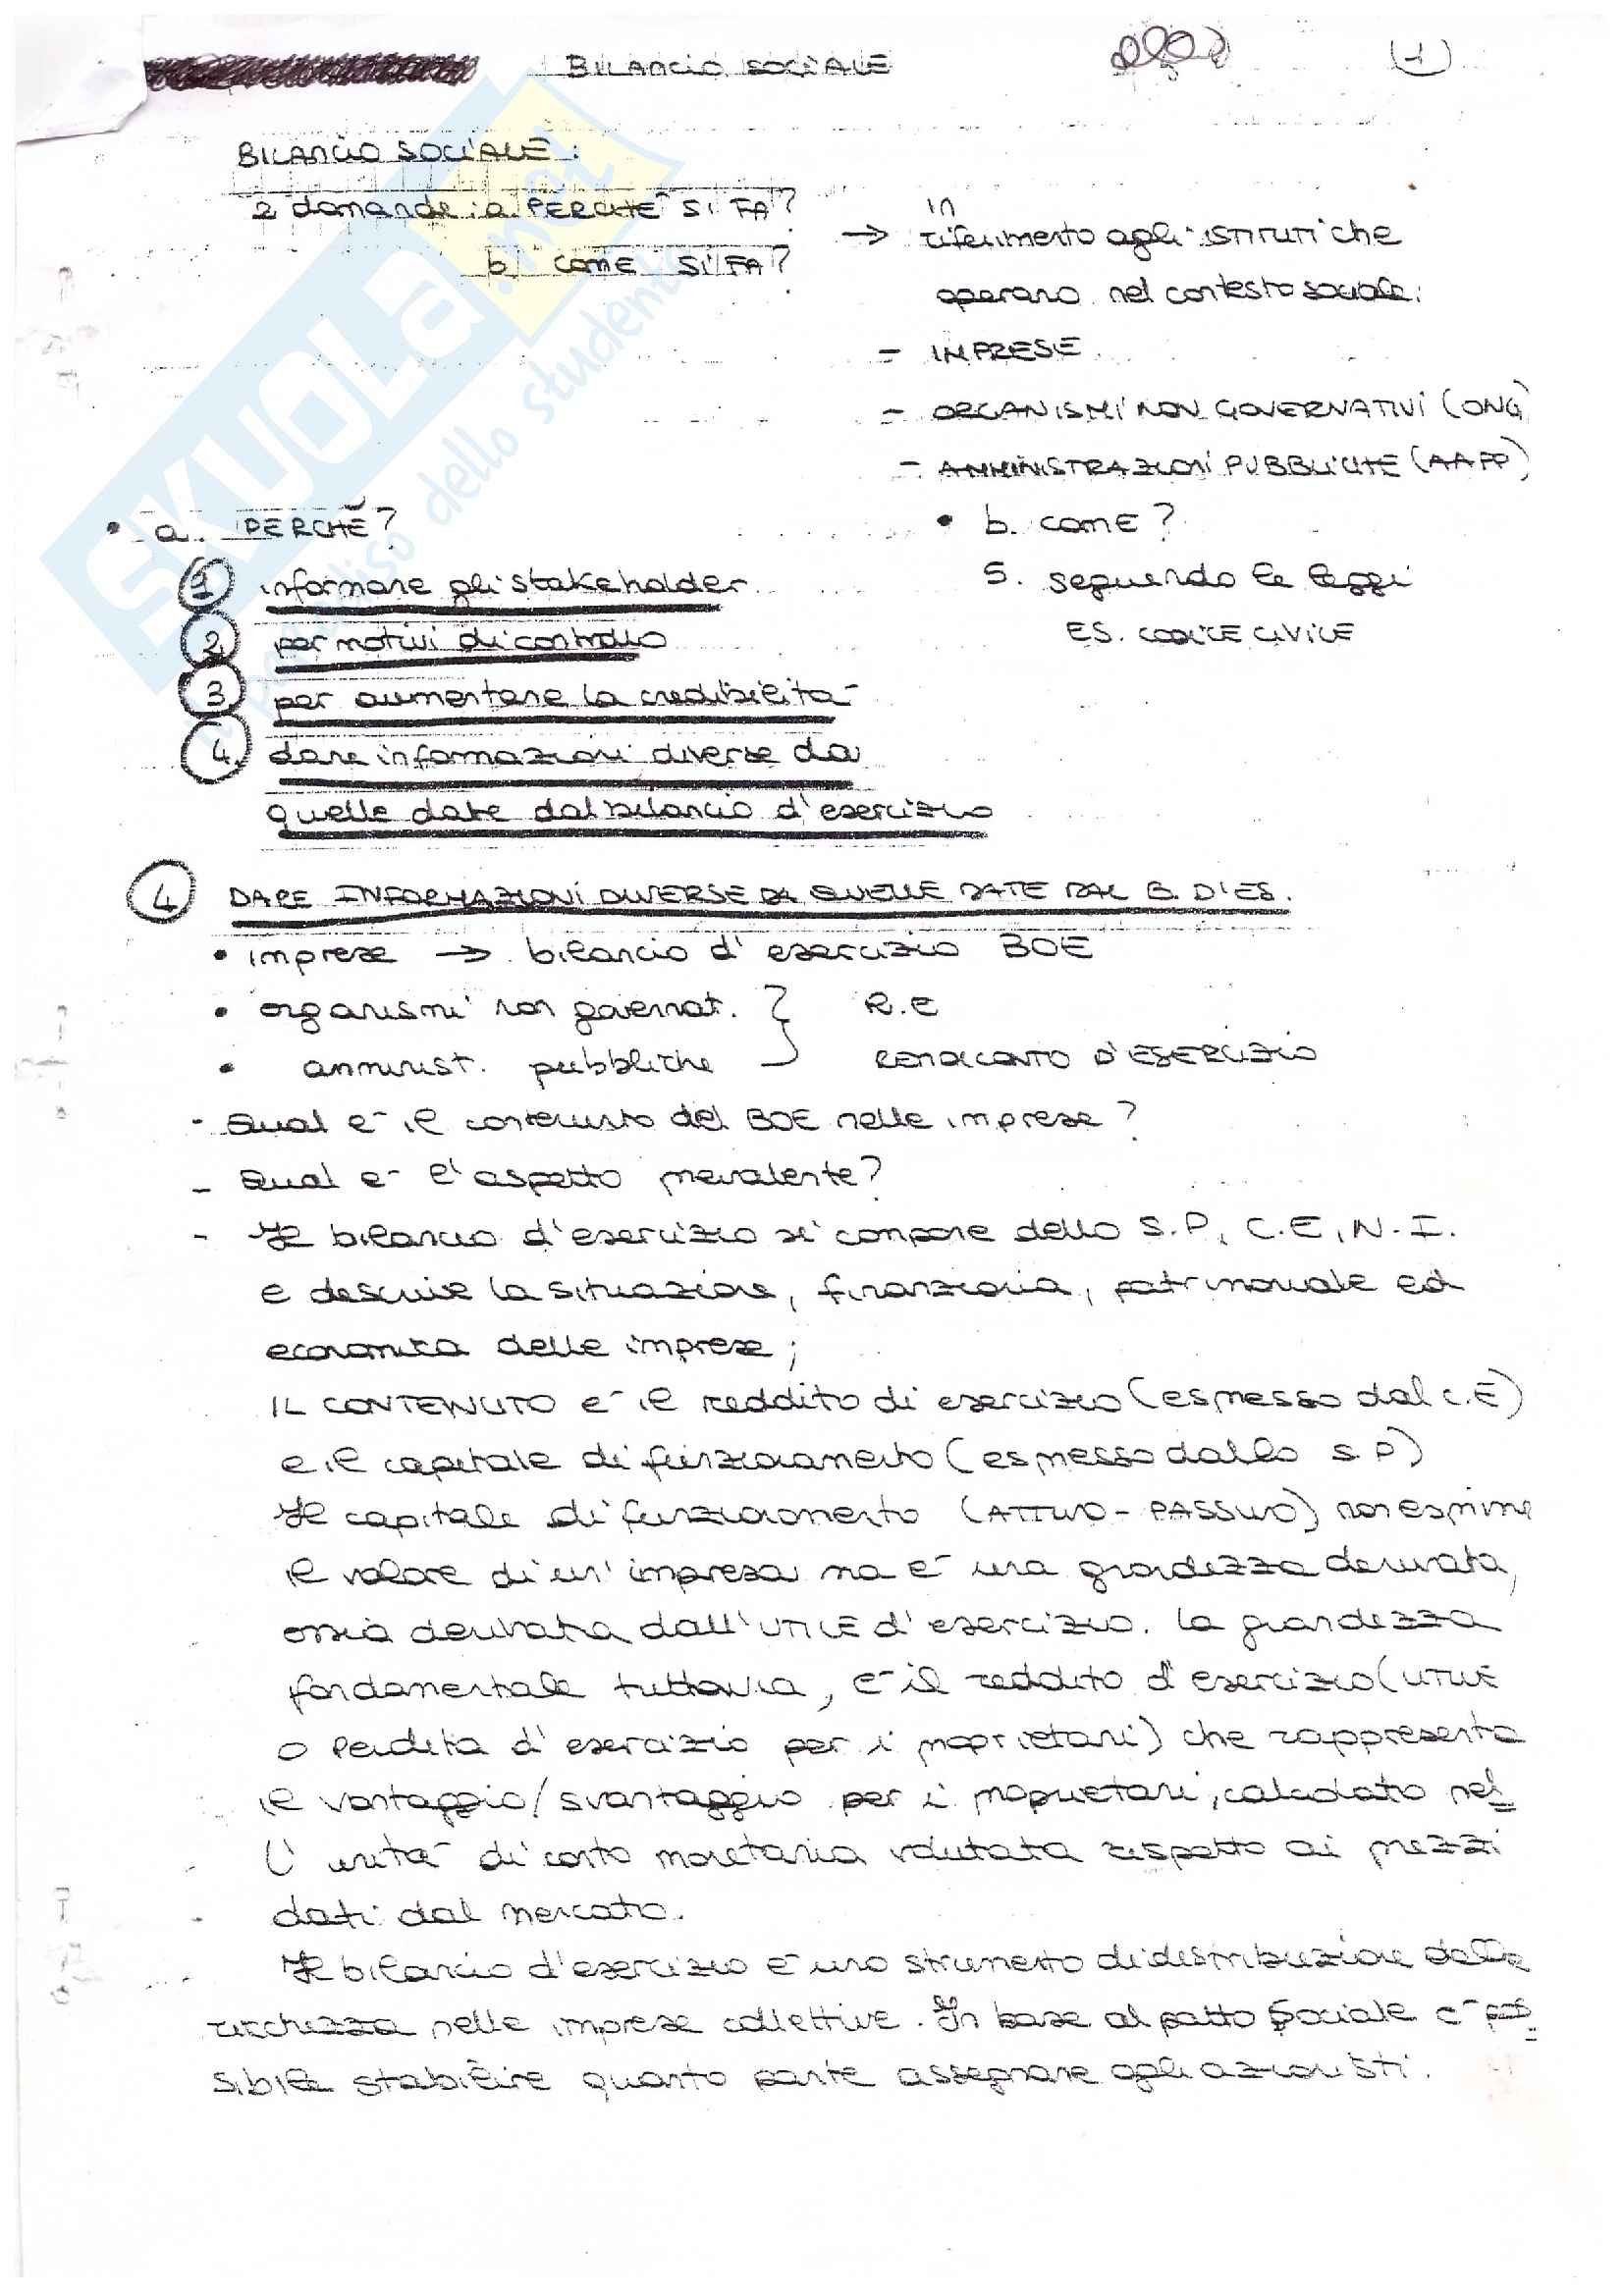 BILANCIO SOCIALE
(1)
BILANCIO SOCIALE:
2 domande: a. PERCHÉ SI FA?
b. COME SI FA?
in
→ riferimento agli ISTITUTI che
operano nel contesto sociale:
- IMPRESE
- ORGANISMI NON GOVERNATIVI (ONG)
- AMMINISTRAZIONI PUBBLICHE (AAPP)
• a. PERCHÉ?
1 informare gli stakeholder
2 per motivi di controllo
3 per aumentare la credibilità
4. dare informazioni diverse da
quelle date dal bilancio d'esercizio
• b. COME?
5. seguendo le leggi
ES. CODICE CIVILE
4 DARE INFORMAZIONI DIVERSE DA QUELLE DATE DAL B. D'ES.
• imprese → bilancio d'esercizio BOE
• organismi non governat. } R.E
• amminist. pubbliche } RENDICONTO D'ESERCIZIO
- Qual è il contenuto del BOE nelle imprese?
- Qual è l'aspetto prevalente?
- Il bilancio d'esercizio si compone dello S.P, C.E, N.I.
e descrive la situazione, finanziaria, patrimoniale ed
economica delle imprese;
IL CONTENUTO è il reddito di esercizio (espresso dal C.E)
e il capitale di funzionamento (espresso dallo S.P)
Il capitale di funzionamento (ATTIVO - PASSIVO) non esprime
il valore di un'impresa ma è una grandezza derivata,
ossia derivata dall'UTILE d'esercizio. La grandezza
fondamentale tuttavia, è il reddito d'esercizio (UTILE
o Perdita d'esercizio per i proprietari) che rappresenta
il vantaggio/svantaggio per i proprietari, calcolato nel
l'unità di conto monetaria valutata rispetto ai prezzi
dati dal mercato.
Il bilancio d'esercizio è uno strumento di distribuzione della
ricchezza nelle imprese collettive. In base al patto sociale è pos
sibile stabilire quanto parte assegnare agli azionisti.
SKUOLA.net
dello studente